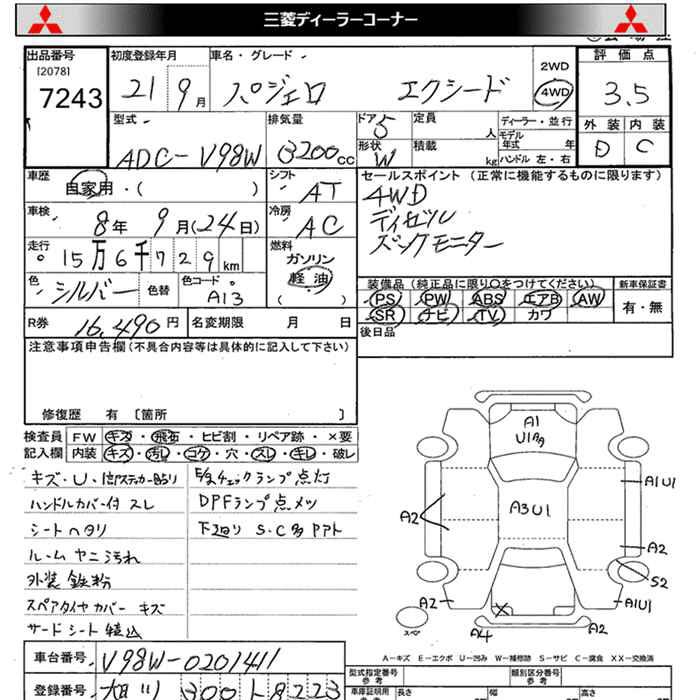 三菱ディーラーコーナー
出品番号
[2078]
7243
初度登録年月
21 9月
車名・グレード
パジェロ エクシード
2WD
4WD
評価点
3.5
外装 内装
D C
型式
ADC-V98W
排気量
3200cc
ドア 5
形状 W
定員 人
積載 kg
ディーラー・並行
モデル年式 年
ハンドル 左・右
車歴
自家用・( )
シフト
AT
セールスポイント (正常に機能するものに限ります)
4WD
ディゼル
バックモニター
車検
8年 9月(24日)
冷房
AC
走行
15万6千729km
燃料
ガソリン
軽油
( ・ )
色
シルバー
色替
色コード
A13
装備品 (純正品に限り○をつけてください)
新車保証書
PS PW ABS エアB AW
SR ナビ TV カワ
有・無
R券 16,490円
名変期限 月 日
後日品
注意事項申告欄(不具合内容等は具体的に記入して下さい)
修復歴 有 〔箇所 〕
検査員記入欄
FW キズ・飛石・ヒビ割・リペア跡・×要
内装 キズ・汚レ・コゲ・穴・スレ・キレ・破レ
キズ・U・
ハンドルカバー付 スレ
シートヘタリ
ルーム ヤニ汚れ
外装 鉄粉
スペアタイヤカバー キズ
サードシート
チェックランプ点灯
DPFランプ点メツ
下廻り S・C多
A1
U1
A3U1
A1U1
A2
A2
S2
A2
A1U1
スペヤ
A4
A2
A-キズ E-エクボ U-凹み W-補修跡 S-サビ C-腐食 XX-交換済
車台番号 V98W-0201411
登録番号 旭川 300 8223
型式指定番号
参考
類別区分番号
参考
車庫証明用
参考
長さ
幅
高さ